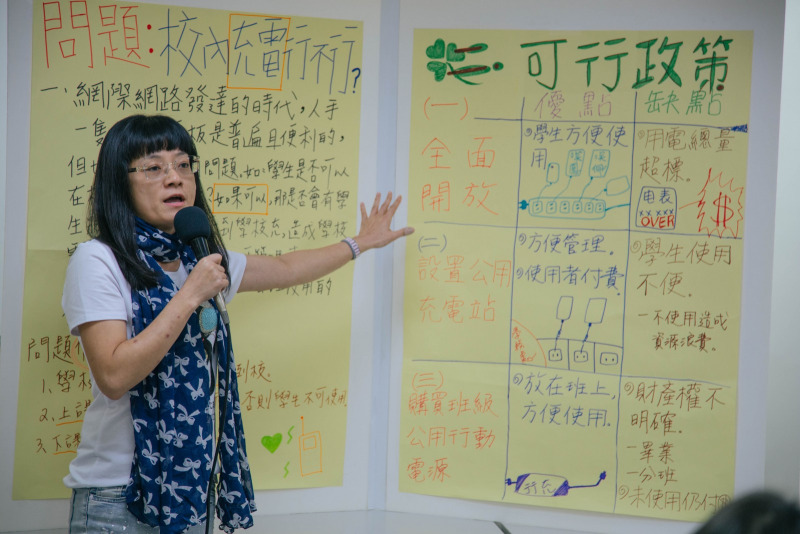 問題:校內充電行不行?
一、網際網路發達的時代,人手
一隻
板是普遍且便利的,
但
問題,如:學生是否可以
在校
?如果可以,那是否會有學
生
到學校充,造成學校
用的
問題
到校。
1、學校
否則學生不可使用
2、上課
3、下課
可行政策
優點
缺點
(一)
全面
開放
①學生方便使
用
①用電總量
超標。
电表
xx xxx
OVER
$
(二)
設置公用
充電站
①方便管理。
②使用者付費。
①學生使用
不便。
一不使用造成
資源浪費。
(三)
購買班級
公用行動
電源
①放在班上,
方便使用.
行充
①財產權不
明確.
一畢業
一分班
②未使用仍付